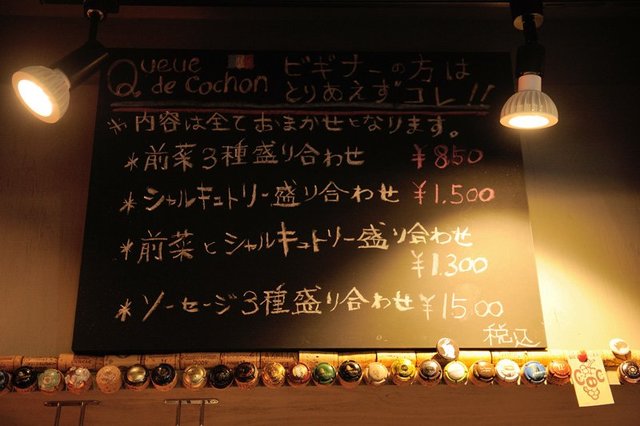 Queue de Cochon
ビギナーの方は
とりあえずコレ!!
※内容は全ておまかせとなります。
*前菜3種盛り合わせ ¥850
*シャルキュトリー盛り合わせ ¥1.500
*前菜とシャルキュトリー盛り合わせ
¥1.300
*ソーセージ3種盛り合わせ ¥1500
税込
C&C